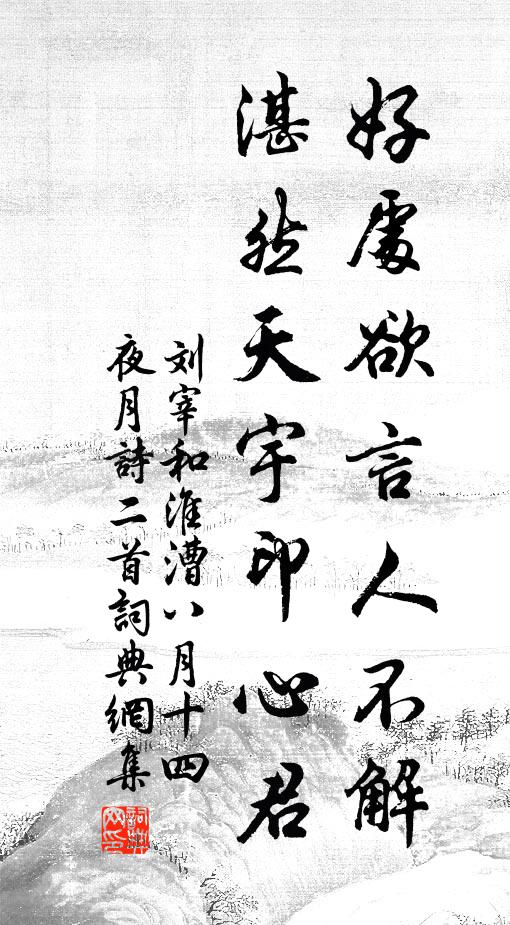 好處欲言人不解
湛然天宇印心君
刘宰和淮漕八月十四
夜月詩二首詞典網集